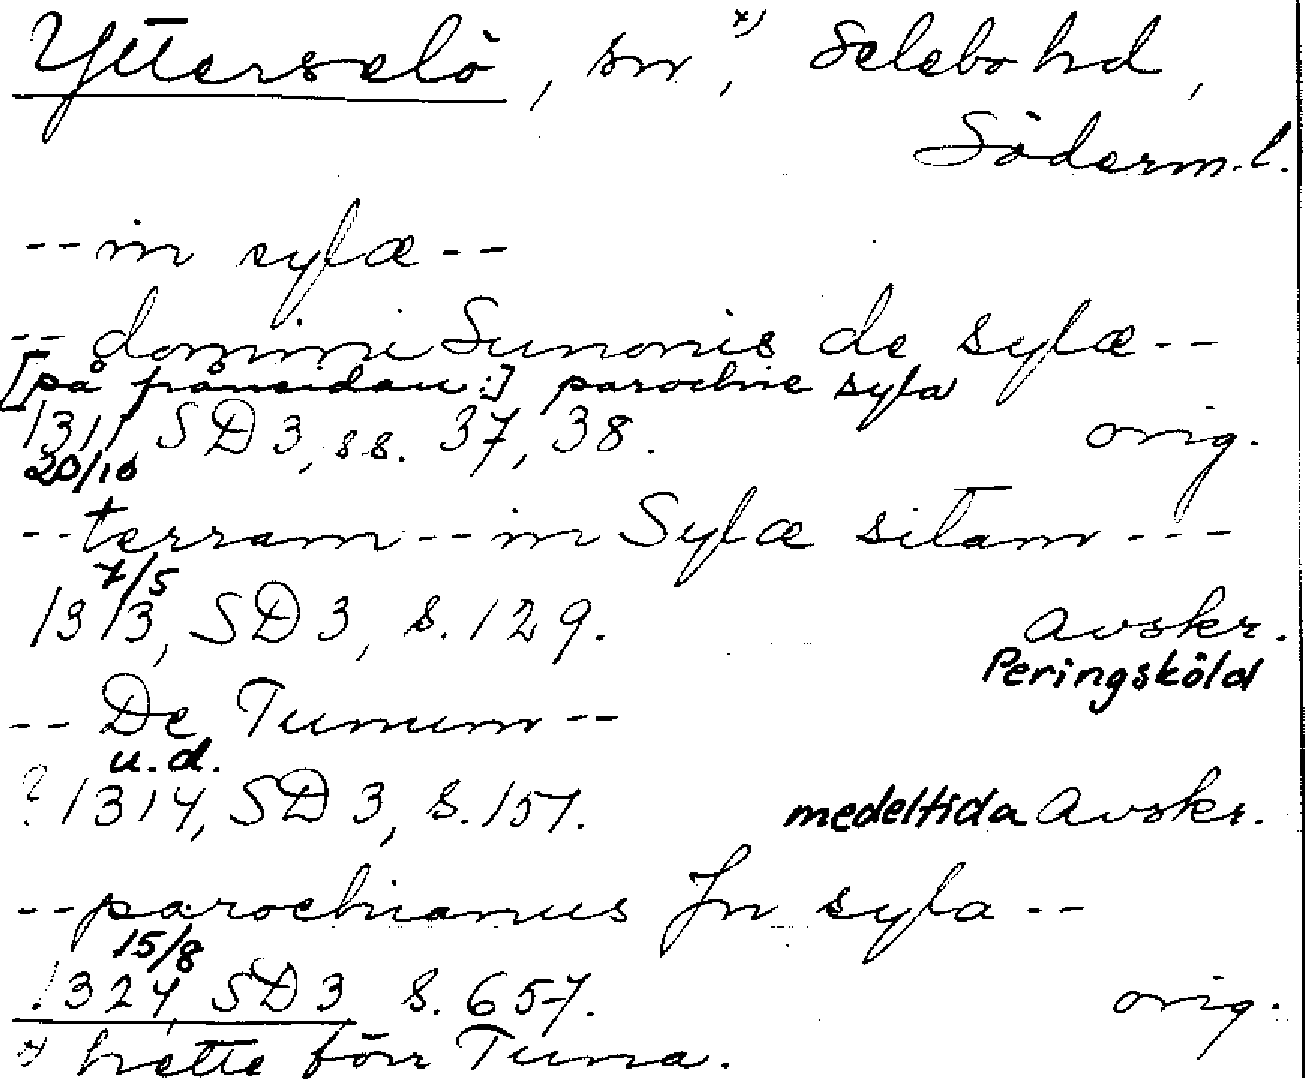 Ytterselö, sn x), Selebo hd,
Söderm.l.
-- in sylæ --
-- domini Sunonis de sylæ --
[på frånsidan:] parochie syla
1311 20/10, SD 3, ss. 37, 38. orig.
-- terram -- in Sylæ sitam ---
1313 7/5, SD 3, s. 129. Avskr.
Peringsköld
-- De Tunum --
u.d.
? 1314, SD 3, s. 157. medeltida Avskr.
-- parochianus Jn syla --
15/8
1324, SD 3 s. 657. orig.
x) hette förr Tuna.